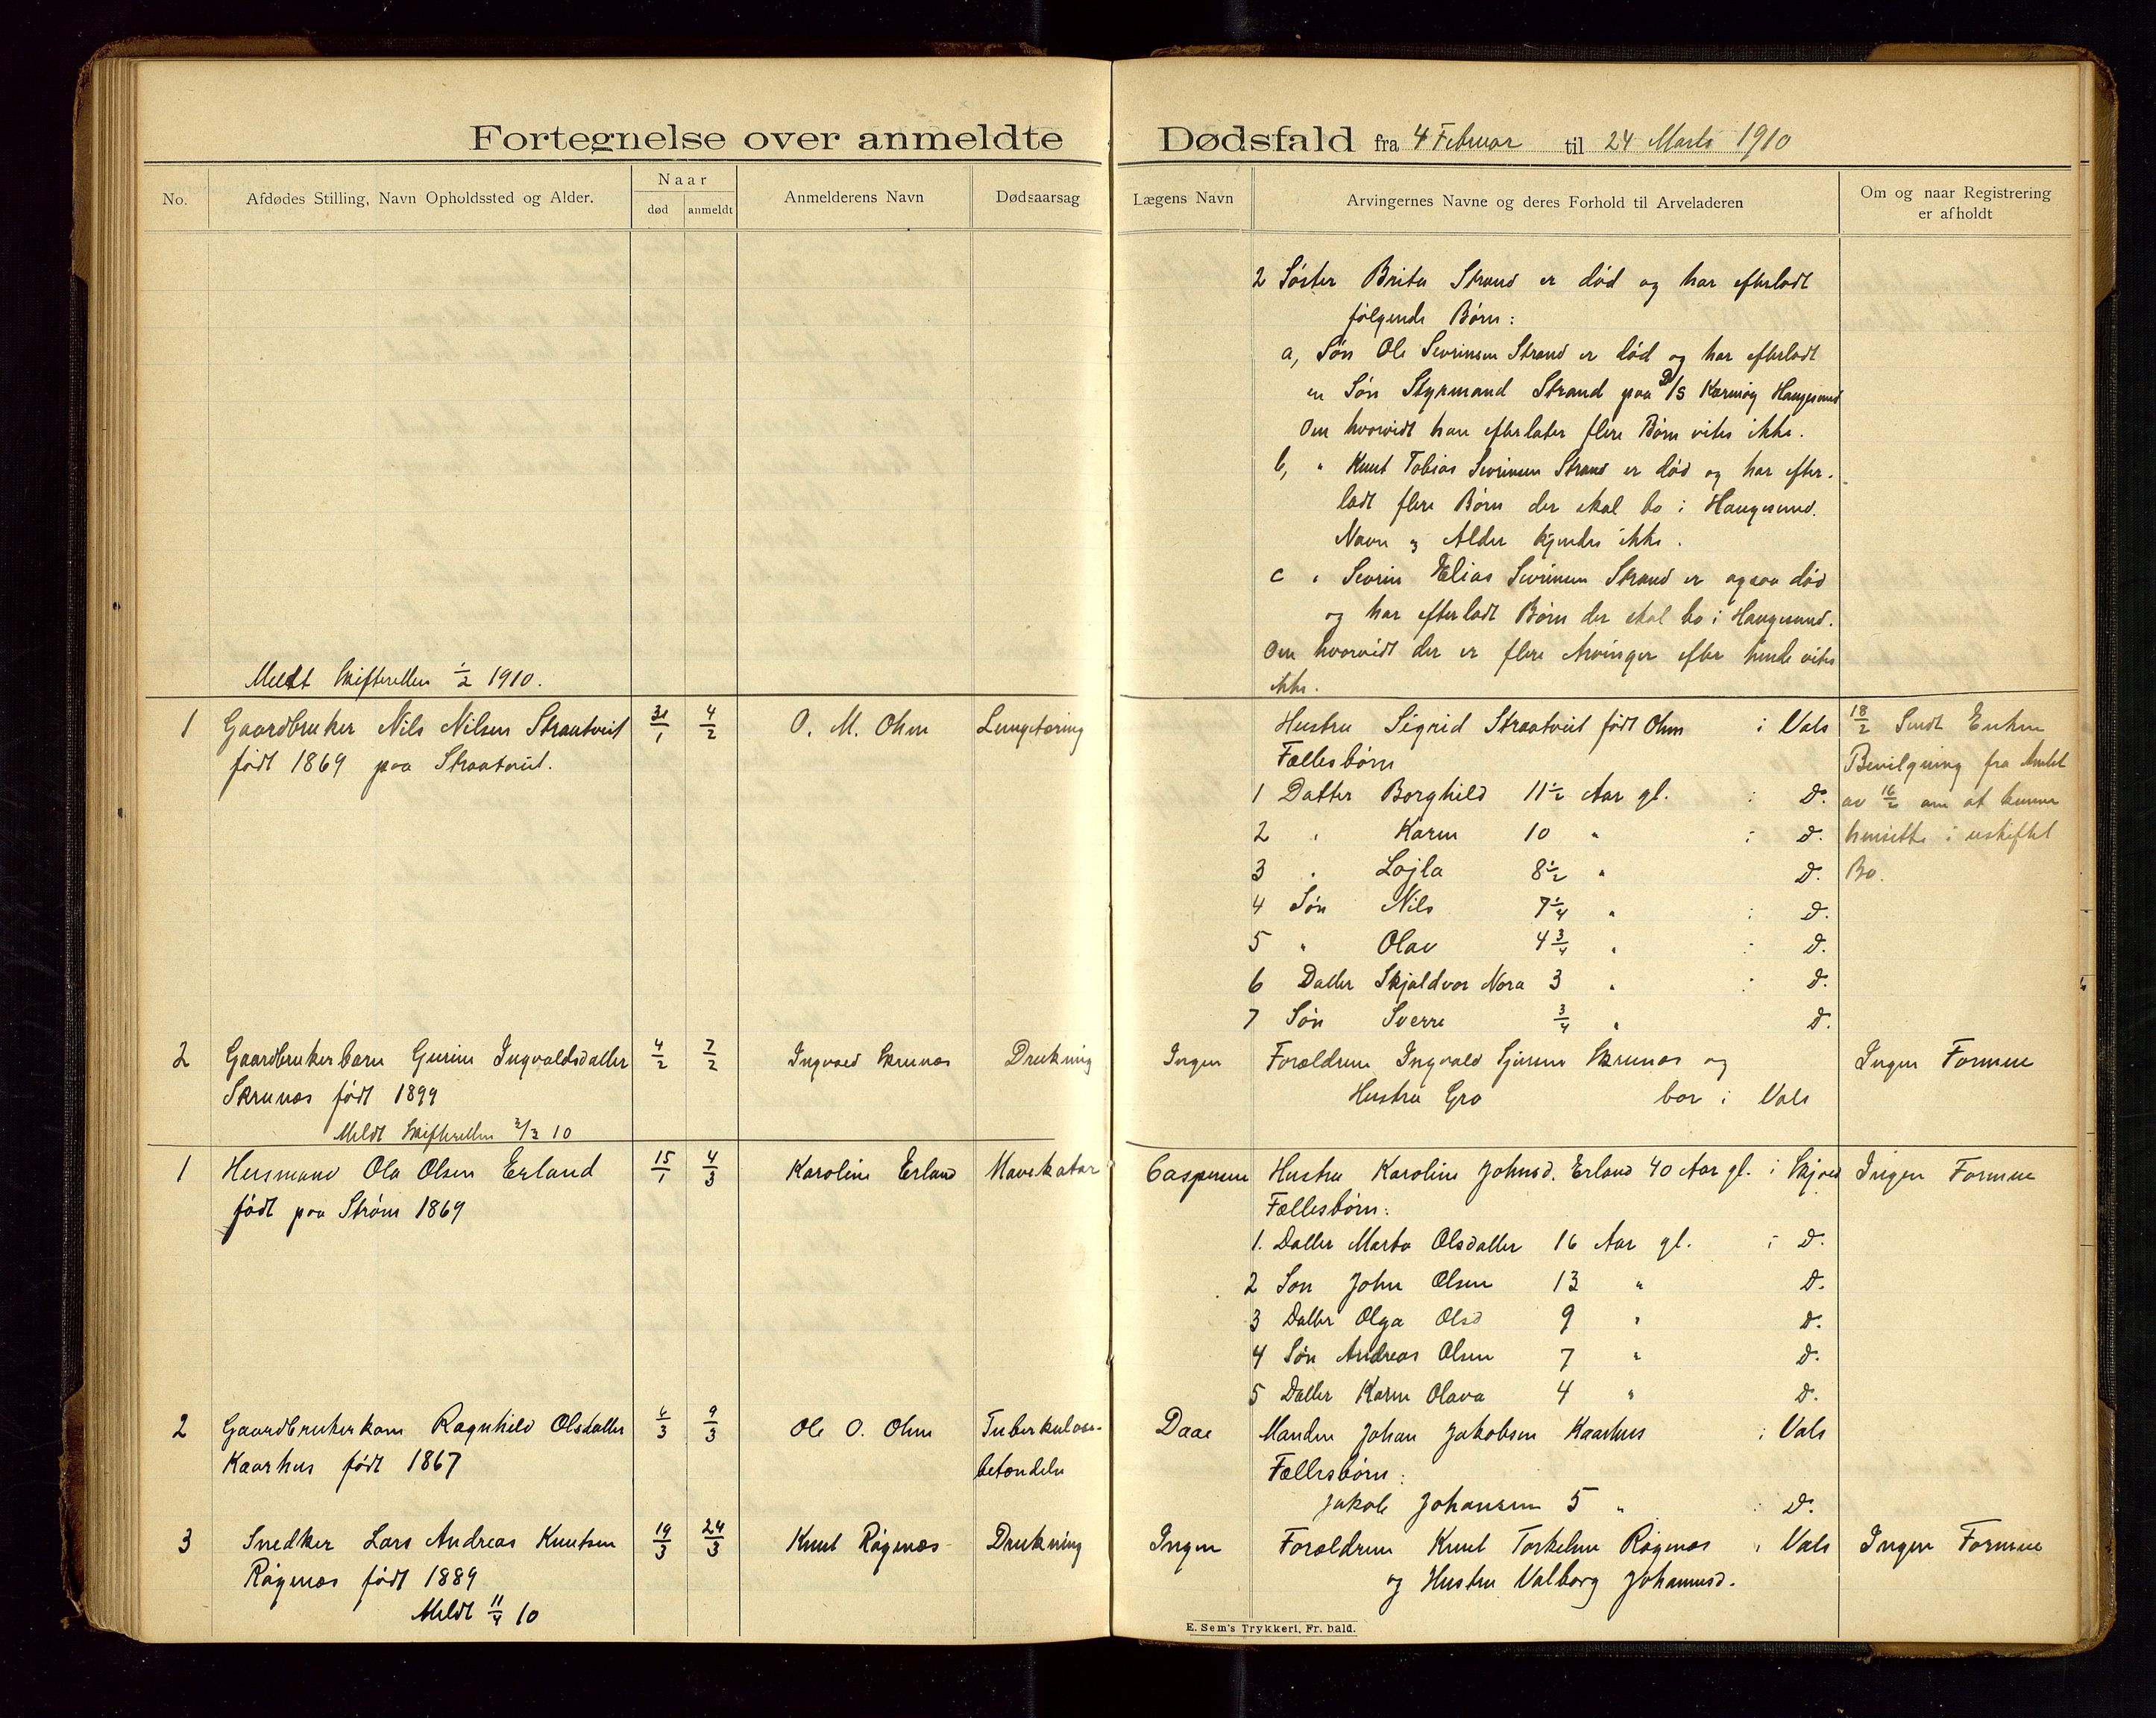 Fortegnelse over anmeldte Dødsfald fra 4 Februar til 24 Marts 1910
No.
Afdødes Stilling, Navn Opholdssted og Alder.
Naar
død
anmeldt
Anmelderens Navn
Dødsaarsag
Lægens Navn
Arvingernes Navne og deres Forhold til Arveladeren
Om og naar Registrering
er afholdt
2 Søster Brita Strand er død og har efterladt
følgende Børn:
a, Søn Ole Sevrinsen Strand er død og har efterladt
en Søn Styrmand Strand paa D/S Karmøy Haugesund
Om hvorvidt han efterlater flere Børn vites ikke.
b, " Knut Tobias Sevrinsen Strand er død og har efter-
ladt flere Børn der skal bo i Haugesund.
Navn og Alder kjendes ikke.
c " Sevrin Elias Sevrinsen Strand er ogsaa død
og har efterladt Børn der skal bo i Haugesund.
Om hvorvidt der er flere Arvinger efter hende vites
ikke.
Meldt Skifteretten 1/2 1910.
1 Gaardbruker Nils Nilsen Straatveit 31/1 4/2 O. M. Ohm Lungetæring Hustru Sigrid Straatveit født Ohm i Vats 18/2 Sendt Enken
født 1869 paa Straatveit. Fællesbørn Bevilgning fra Amtet
1 Datter Borghild 11 1/2 Aar gl. i D. av 16/2 om at kunne
2 " Karen 10 " i D. hensitte i uskiftet
3 " Lajla 8 1/2 " D. Bo.
4 Søn Nils 7 1/4 " i D.
5 " Olav 4 3/4 " D.
6 Datter Skjoldvor Nora 3 " D.
7 Søn Sverre 3/4 " D.
2 Gaardbrukerbarn Gurine Ingvaldsdatter 4/2 7/2 Ingvald Skrunes Drukning Ingen Forældrene Ingvald Sjursen Skrunes og Ingen Formue
Skrunes født 1899 Hustru Gro bor i Vats
Meldt Skifteretten 3/3 10
1 Husmand Ola Olsen Erland 15/1 4/3 Karoline Erland Mavekatar Caspersen Hustru Karoline Johnsd. Erland 40 Aar gl. i Skjold Ingen Formue
født paa Strøm 1869 Fællesbørn:
1. Datter Marta Olsdatter 16 Aar gl. i D.
2 Søn John Olsen 13 " D.
3 Datter Olga Olsd 9 " D.
4 Søn Andreas Olsen 7 " D.
5 Datter Karen Olava 4 " D.
2 Gaardbrukerkone Ragnhild Olsdatter 6/3 9/3 Ole O. Ohm Tuberkuløse- Daae Manden Johan Jakobsen Kaarhus i Vats
Kaarhus født 1867 betændelse Fællesbørn:
Jakob Johansen 5 " i D.
3 Snedker Lars Andreas Knutsen 19/3 24/3 Knut Røgenes Drukning Ingen Forældrene Knut Torkelsen Røgenes i Vats Ingen Formue
Røgenes født 1889 og Hustru Valborg Johannesd.
Meldt 11/4 10
E. Sem's Trykkeri, Fr. hald.